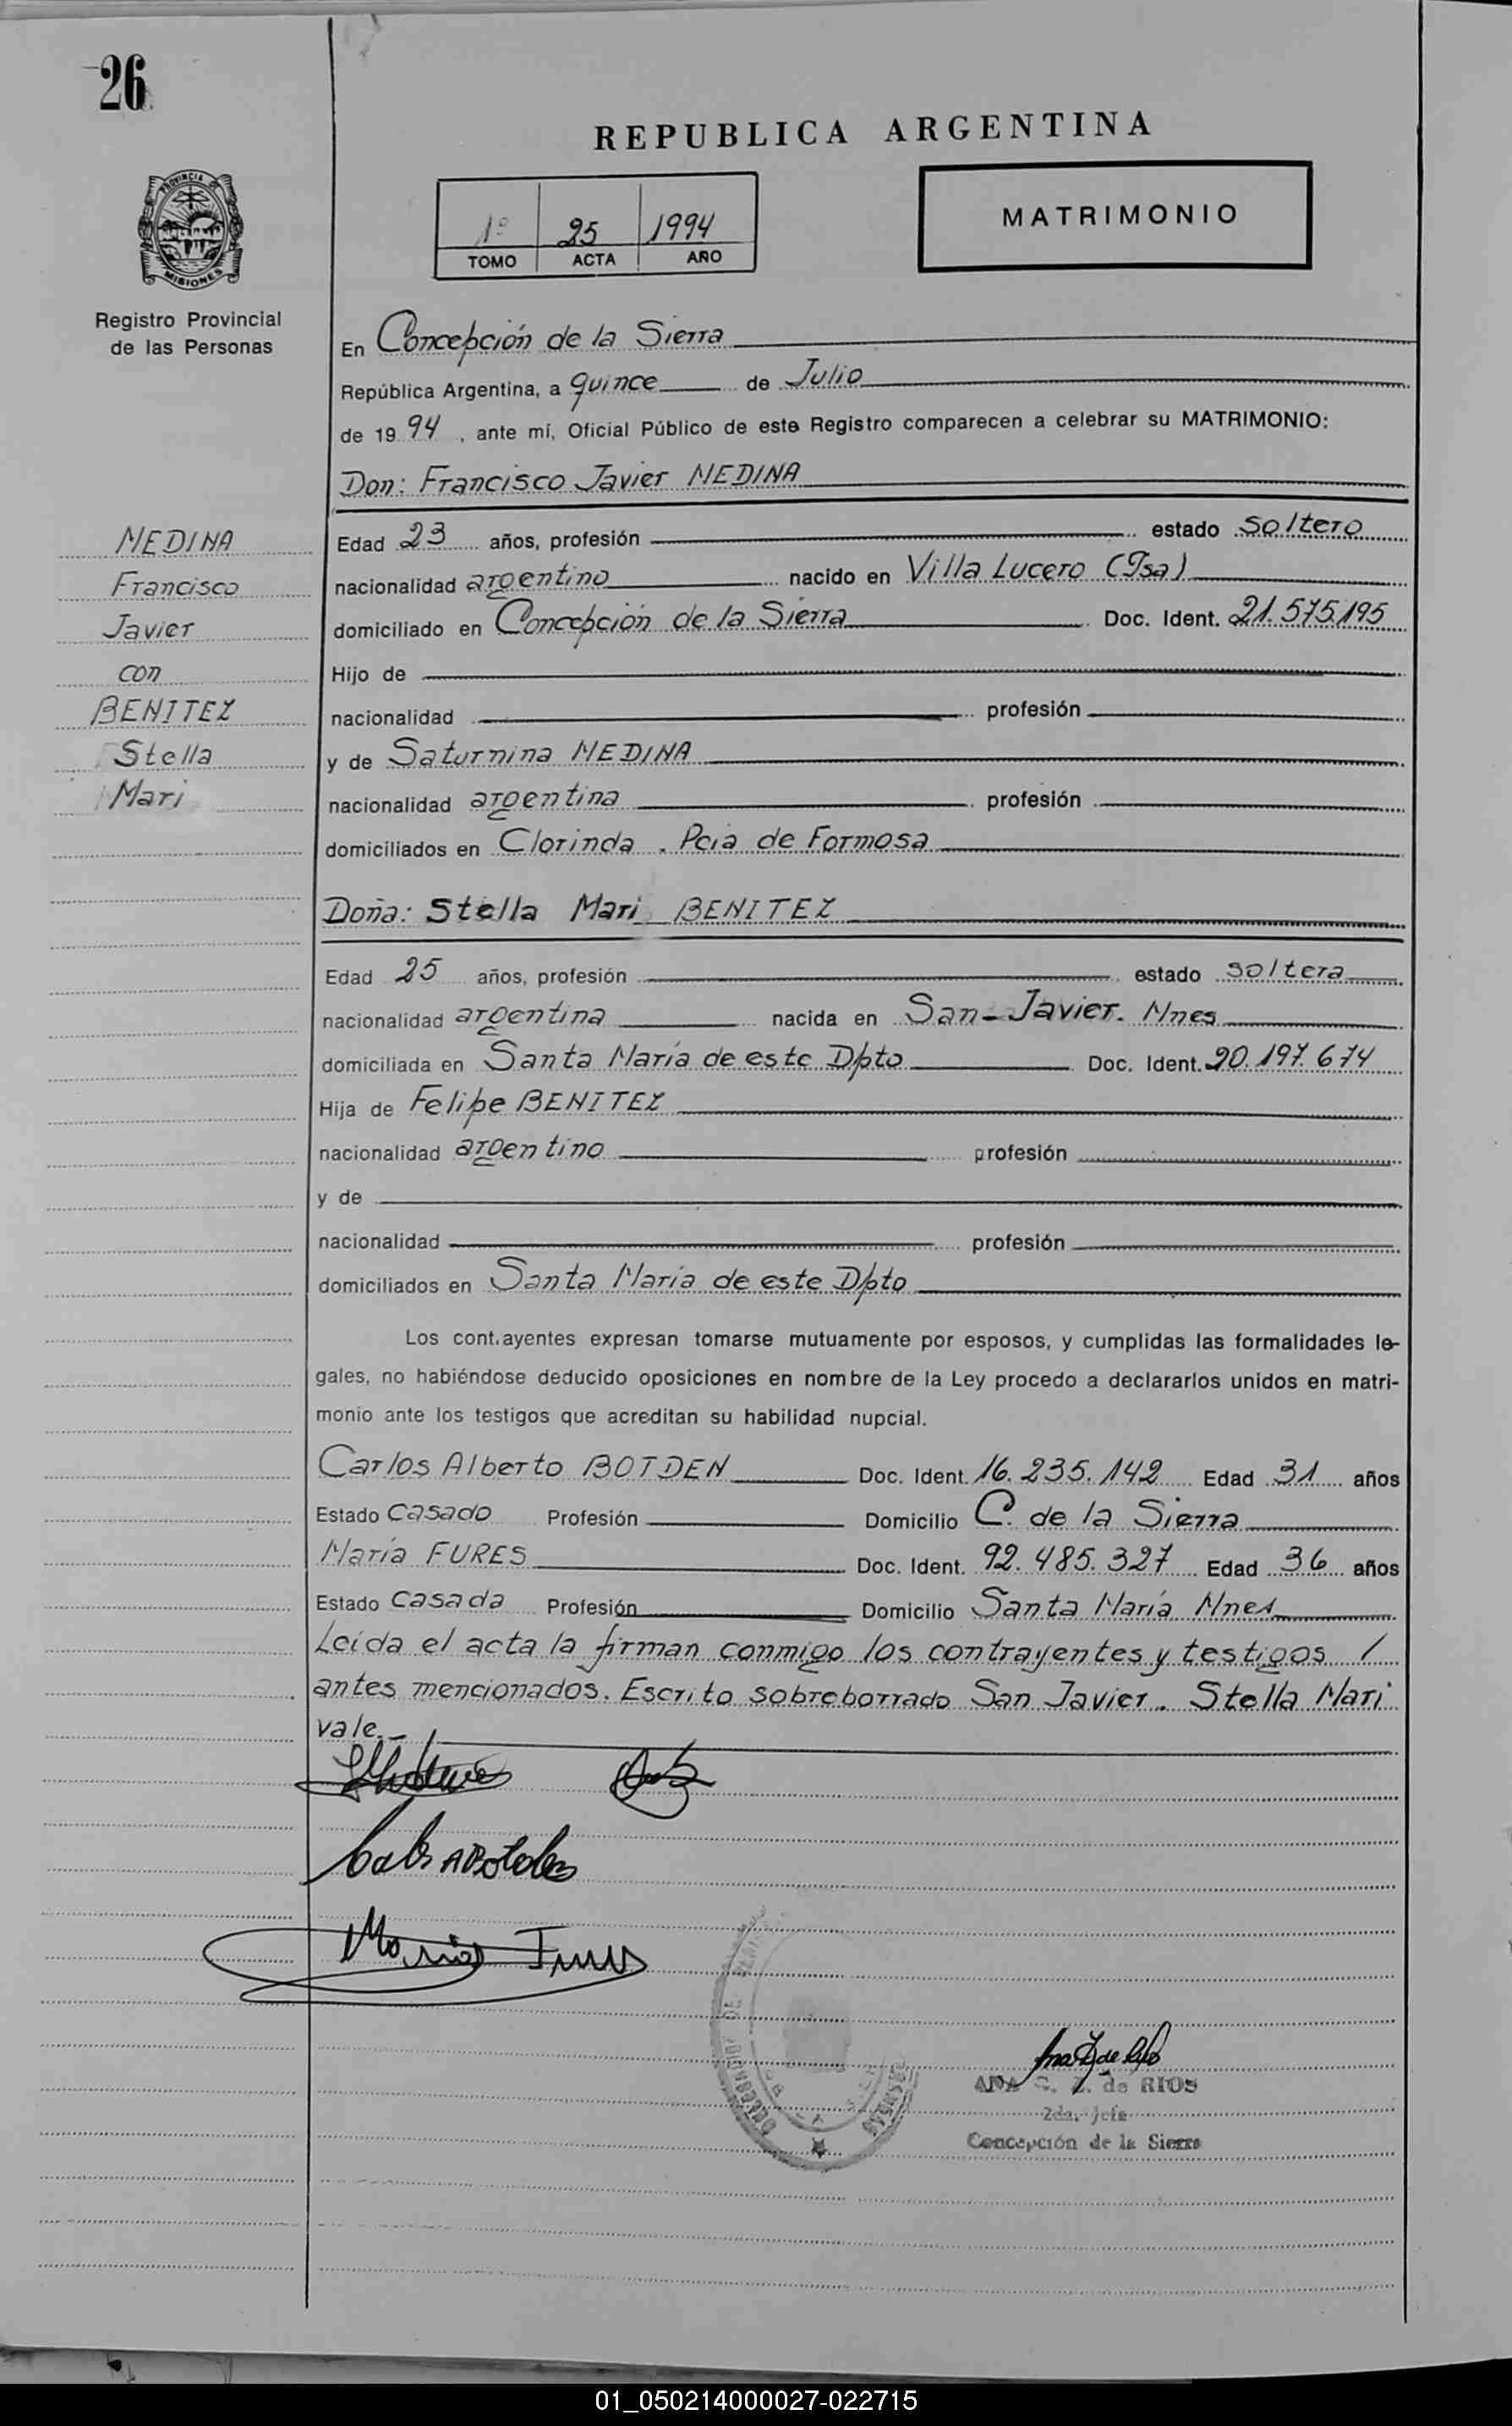 26
REPUBLICA ARGENTINA
PROVINCIA DE
MISIONES
1º 25 1994
TOMO ACTA AÑO
MATRIMONIO
Registro Provincial
de las Personas
En Concepción de la Sierra
República Argentina, a quince de Julio
de 19 94, ante mí, Oficial Público de este Registro comparecen a celebrar su MATRIMONIO:
Don: Francisco Javier MEDINA
MEDINA
Francisco
Javier
con
BENITEZ
Stella
Mari
Edad 23 años, profesión estado soltero
nacionalidad argentino nacido en Villa Lucero (Fsa)
domiciliado en Concepción de la Sierra Doc. Ident. 21.575.195
Hijo de
nacionalidad profesión
y de Saturnina MEDINA
nacionalidad argentina profesión
domiciliados en Clorinda. Pcia de Formosa
Doña: Stella Mari BENITEZ
Edad 25 años, profesión estado soltera
nacionalidad argentina nacida en San-Javier. Mnes
domiciliada en Santa María de este Dpto Doc. Ident. 20.197.674
Hija de Felipe BENITEZ
nacionalidad argentino profesión
y de
nacionalidad profesión
domiciliados en Santa María de este Dpto
Los cont.ayentes expresan tomarse mutuamente por esposos, y cumplidas las formalidades le-
gales, no habiéndose deducido oposiciones en nombre de la Ley procedo a declararlos unidos en matri-
monio ante los testigos que acreditan su habilidad nupcial.
Carlos Alberto BOTDEN Doc. Ident. 16.235.142 Edad 31 años
Estado Casado Profesión Domicilio C. de la Sierra
María FURES Doc. Ident. 92.485.327 Edad 36 años
Estado Casada Profesión Domicilio Santa María Mnes
Leída el acta la firman conmigo los contrayentes y testigos /
antes mencionados. Escrito sobreborrado San Javier. Stella Mari
vale.-
ANA C. Z. de RIOS
2da. Jefe
Concepción de la Sierra
01_050214000027-022715